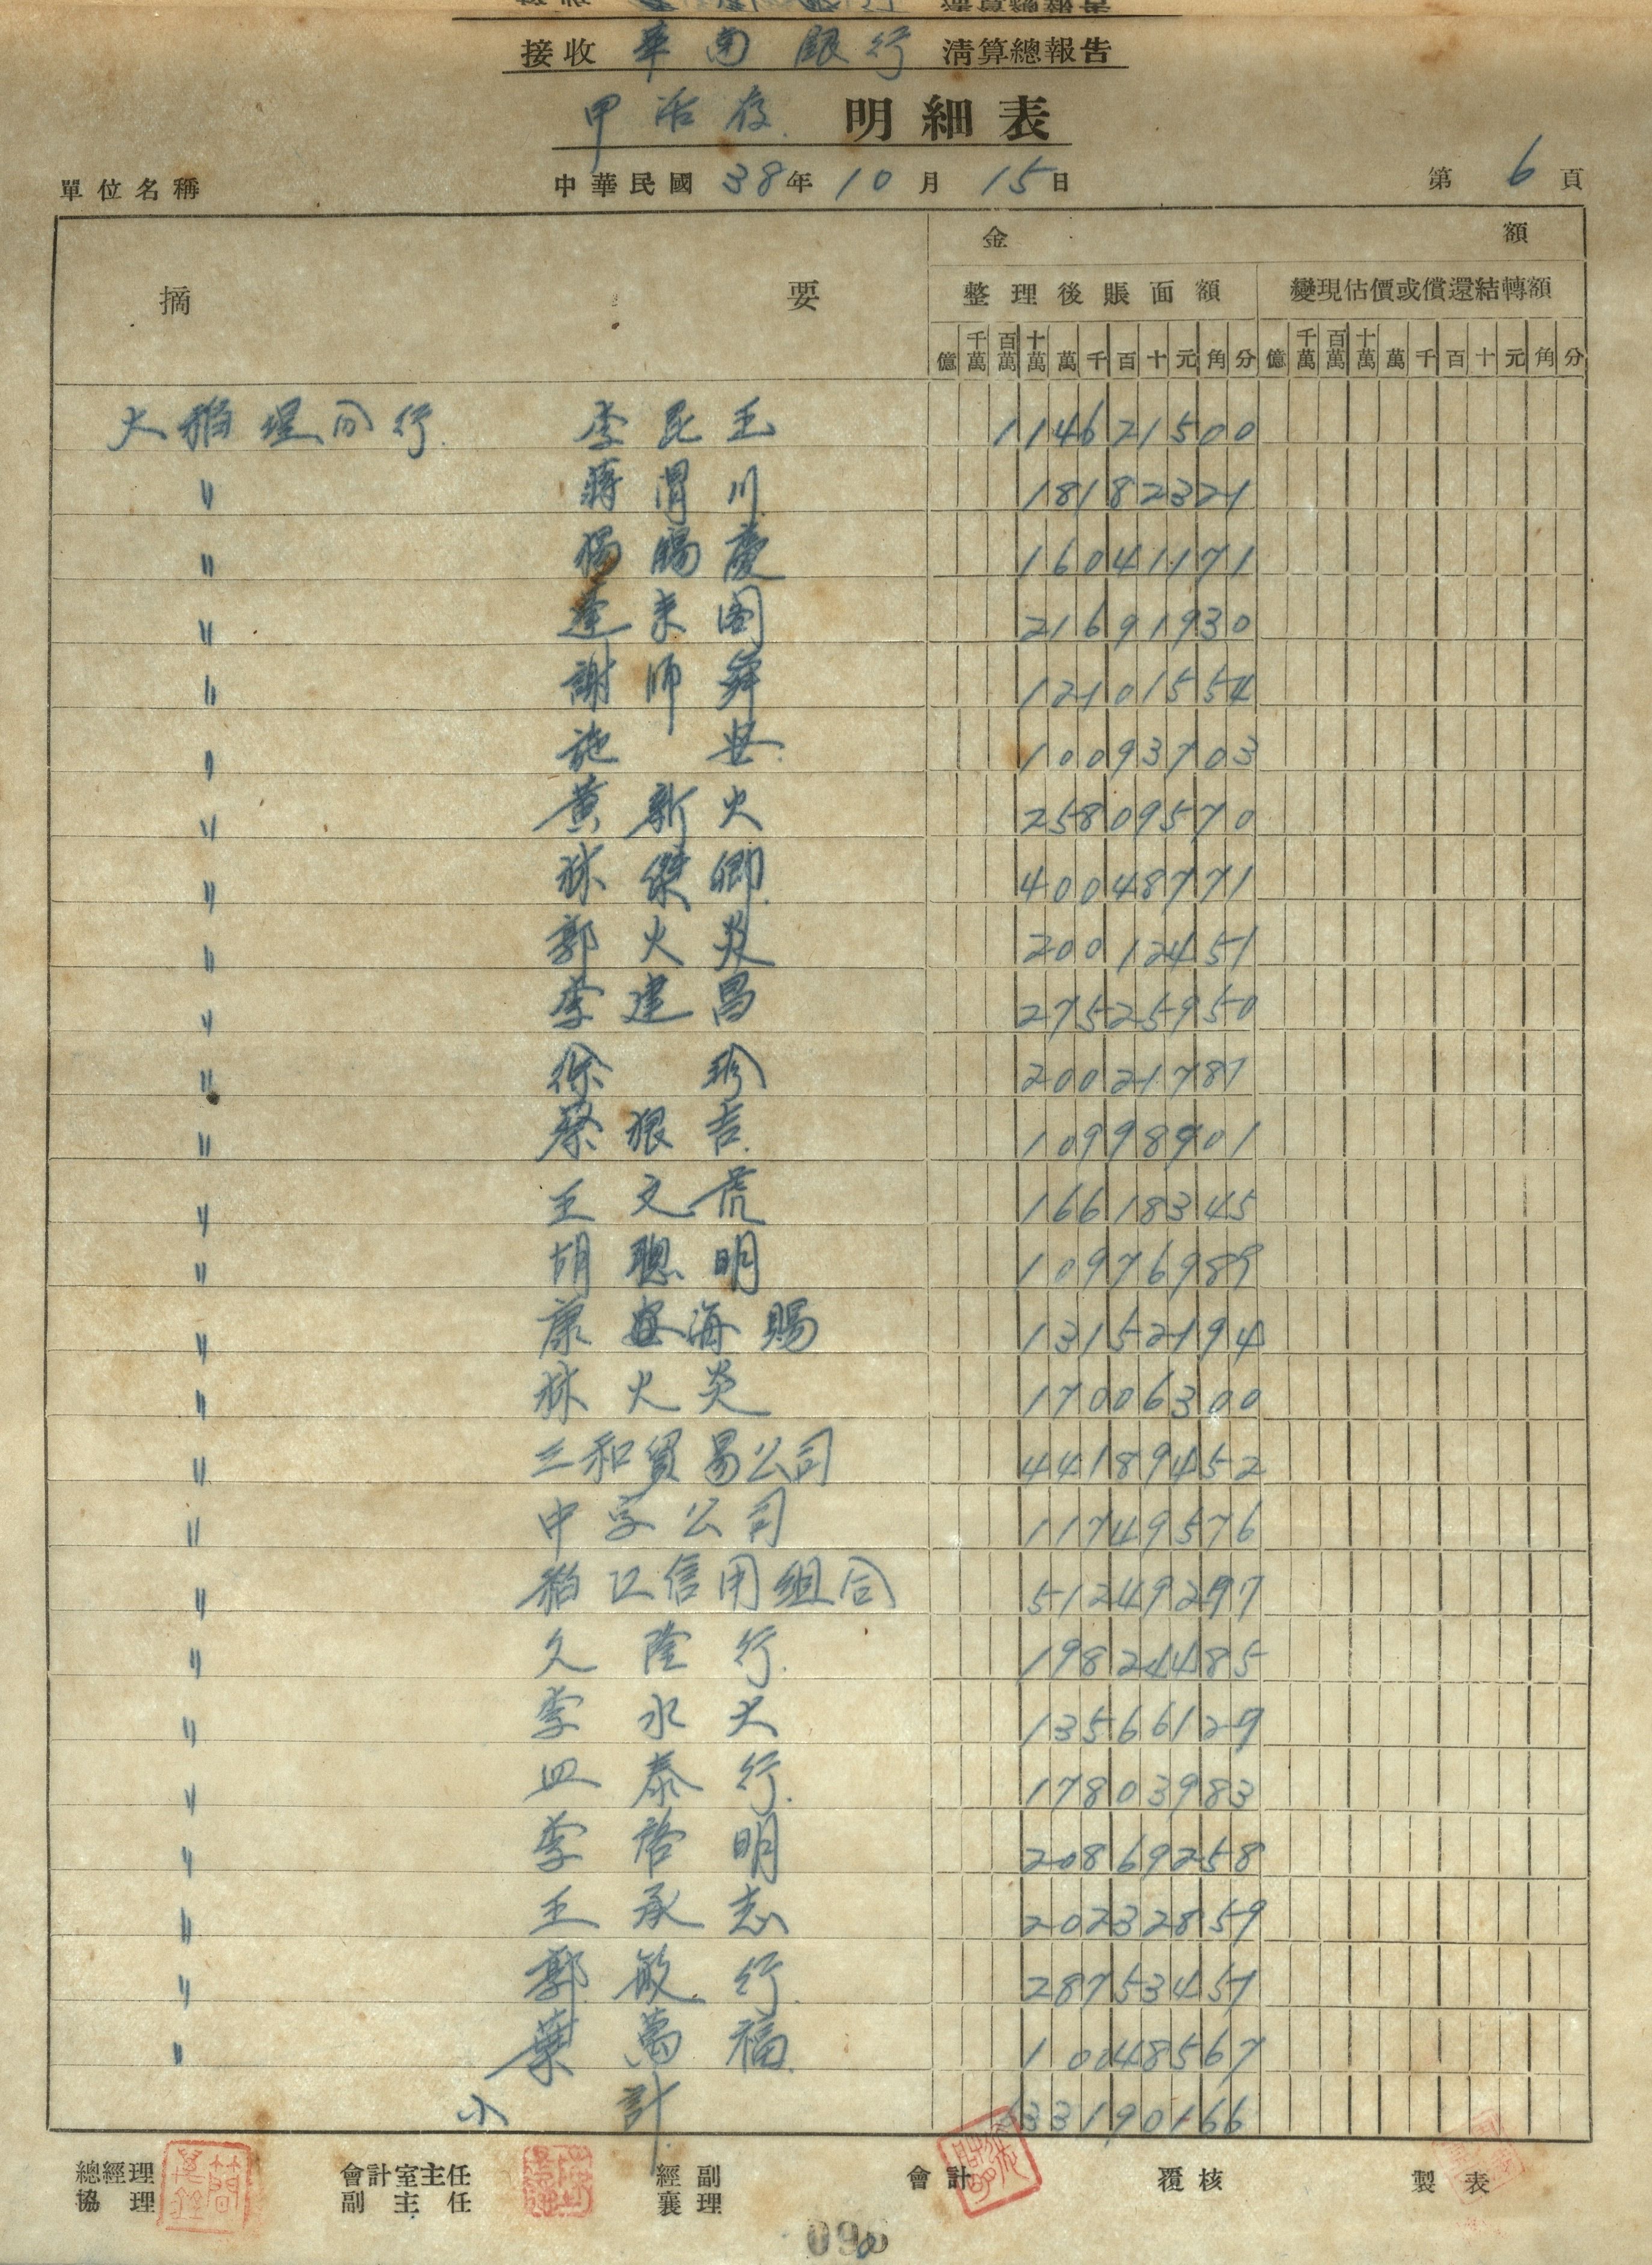 接收 華南銀行 清算總報告
甲活存 明細表
單位名稱 中華民國 38年 10月 15日 第 6 頁
摘要 金額
整理後賬面額 變現估價或償還結轉額
億 千萬 百萬 十萬 萬 千 百 十 元 角 分 億 千萬 百萬 十萬 萬 千 百 十 元 角 分
大稻埕分行 李昆玉 114621500
〃 蔣渭川 18182321
〃 楊賜慶 16041171
〃 蓬来阁 21691930
〃 謝师舜 12101554
〃 施 安 10093703
〃 黄新火 25809570
〃 林傑卿 40048771
〃 郭火炎 20012451
〃 李建昌 27525950
〃 徐 珍 20021787
〃 蔡振吉 10998901
〃 王文虎 16618345
〃 胡聰明 10976989
〃 康安海賜 13152194
〃 林火炎 17006300
〃 三和貿易公司 44189452
〃 中字公司 11749576
〃 稻江信用組合 51249297
〃 久隆行 19824485
〃 李水火 13566129
〃 四泰行 17803983
〃 李啓明 20869258
〃 王承志 20232859
〃 郭敏行 28753457
〃 葉萬福 10048567
小計 33190166
總經理 會計室主任 經副 會計 覆核 製表
協理 副主任 襄理